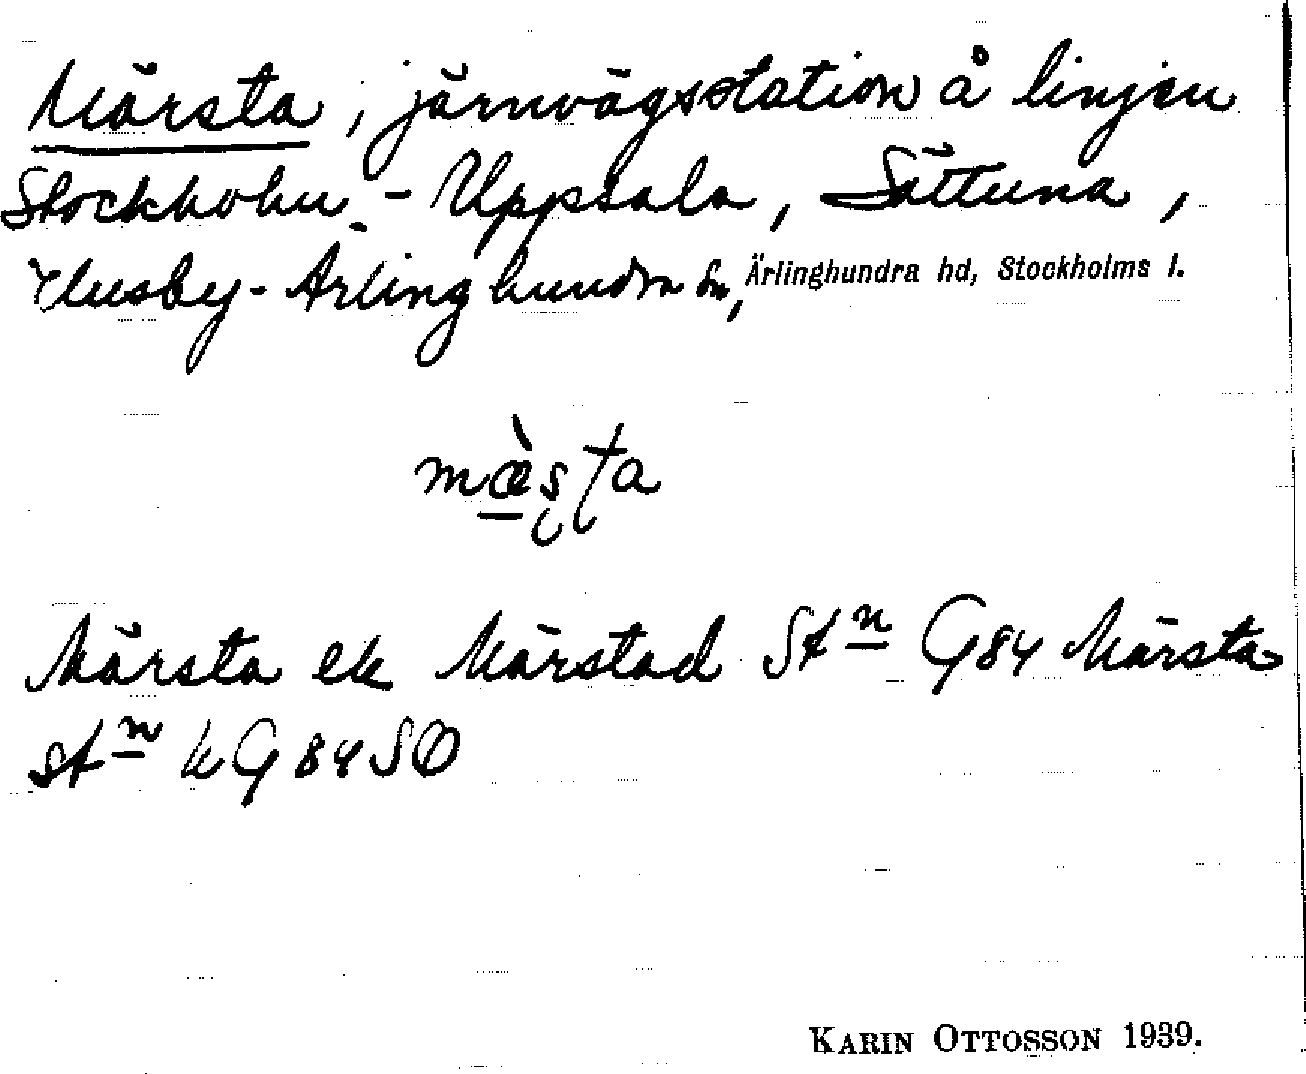 Märsta, järnvägsstation å linjen
Stockholm - Uppsala, Sättuna,
Husby-Ärlinghundra sn, Ärlinghundra hd, Stockholms l.
mæ̀sta
Märsta ek Märstad Stn G84 Märsta
stn kG84SO
KARIN OTTOSSON 1939.